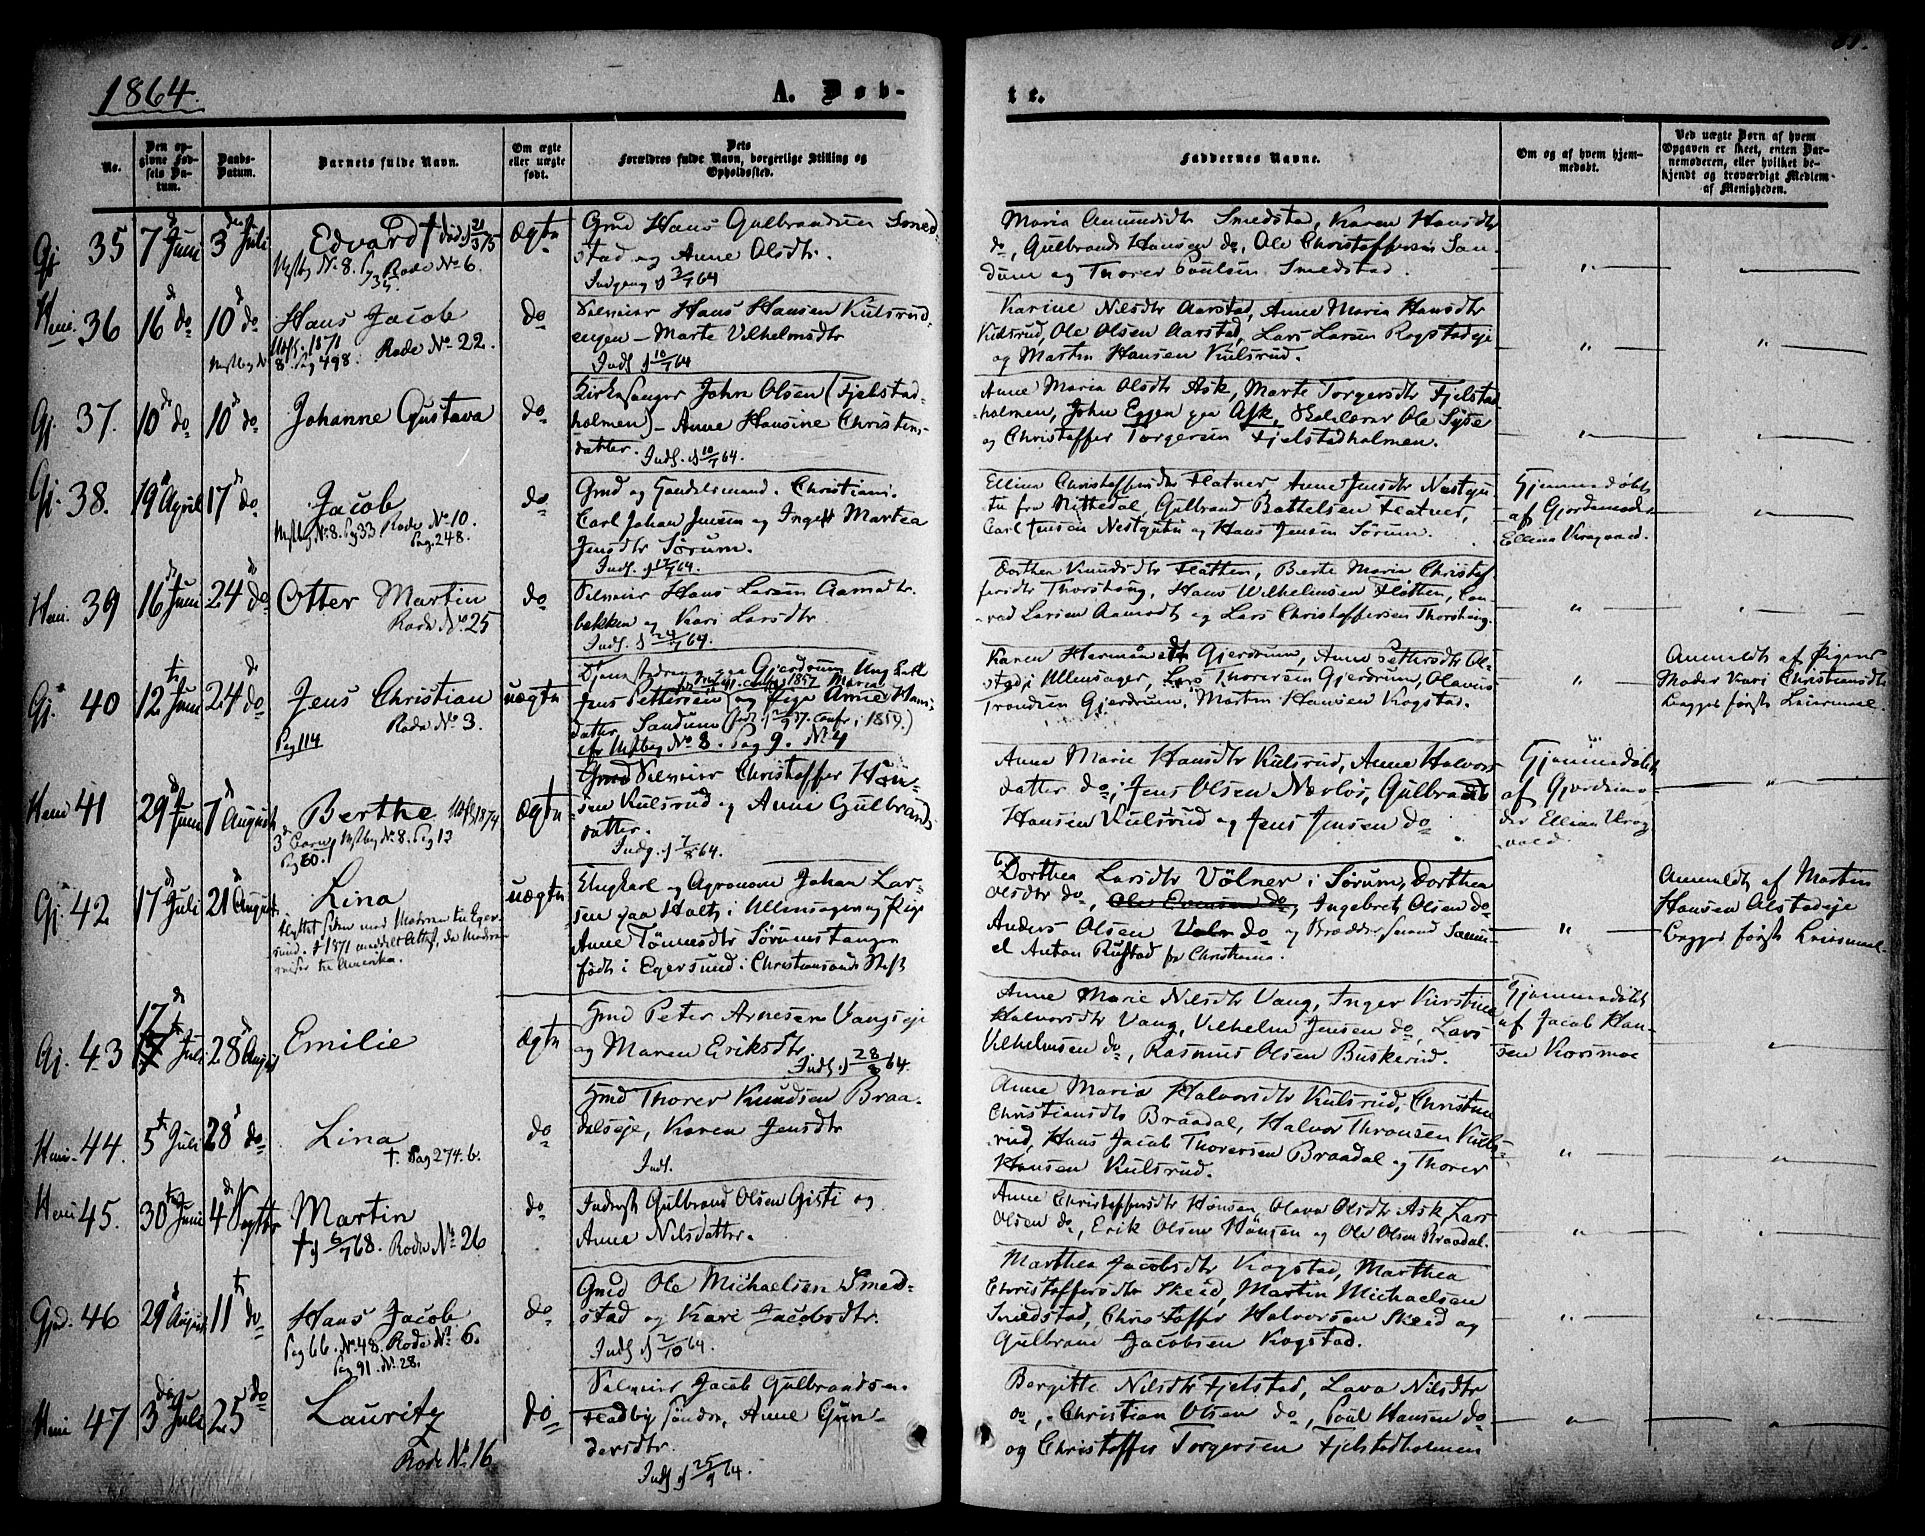 1864.
A. Døb-
te.
No.
Den op-
givne Fød-
sels Da-
tum.
Daabs-
Datum.
Barnets fulde Navn.
Om ægte
eller uægte
født.
Dets
Forældres fulde Navn, borgerlige Stilling og
Opholdssted.
Faddernes Navne.
Om og af hvem hjem-
medøbt.
Ved uægte Børn af hvem
Opgaven er skeet, enten Bar-
nemoderen, eller hvilket be-
kjendt og troværdigt Medlem
af Menigheden.
Gj. 35 7d Juni 3die Juli Edvard † død 21/3 75 Ægte
Rode No 6.
Gmd Hans Gulbrandsen Smed-
stad og Anne Olsdtr.
Indgang d 3/7 64
Maria Amundsdtr Smedstad, Karen Hansdtr
do, Gulbrand Hansen do, Ole Christoffersen San-
dum og Thorer Poulsen Smedstad.
Hemi. 36 16d do 10d do Hans Jacob do
1871 Rode No 22.
8. Pag 498.
Selveier Hans Hansen Kulsrud-
engen – Marte Vilhelmsdtr
Indl. d 10/7 64
Karine Nilsdtr Aarstad, Anne Maria Hansdtr
Kulsrud, Ole Olsen Aarstad, Lars Larsen Rogstadeje
og Martin Hansen Kulsrud.
Gj. 37. 10d do 10d do Johanne Gustava do
Kirkesanger John Olsen (Fjelstad-
holmen) – Anne Hansine Christens-
datter. Indl. d 10/7 64.
Anne Maria Olsdtr Ask, Marte Torgersdtr Fjelstad
holmen, John Eggen paa Ask, Skolelærer Ole Syse
og Christoffer Torgersen Fjelstadholmen.
Gj. 38. 19d April 17d do Jacob do
No 8. Pag 33 Rode No 10.
Pag. 248.
Gmd og Handelsmand. Christian.
Carl Johan Jensen og Marthea
Jensdtr Sørum.
Indl. d 17/7 64.
Christoffersdtr Flatner Anne Jensdtr Nestgu-
tu fra Nittedal, Gulbrand Battelsen Flatner,
Carl Jensen Nestgutu og Hans Jensen Sørum.
Hjemmedøbt
af Gjordemoder
Ellina Kragvold.
Hemi. 39 16d Juni 24d do Otter Martin do
Rode No 25
Selveier Hans Larsen Aamodt-
bakken og Kari Larsdtr
Indl. d 24/7 64.
Dorthea Knudsdtr Flatten, Berte Maria Christof
fersdtr Thorshaug, Hans Wilhelmsen Flatten,
Larsen Aamodt og Lars Christoffersen Thorshaug.
Gj. 40 12te Juni 24d do Jens Christian uægte
Rode No 3.
Pag 114
Gjerdrum Ung Karl
Jens Pettersen og Pige Anne Hans-
datter Sandum
No 8. Pag 9. No 4
Karen Hermansdtr Gjerdrum, Anne Pettersdtr Ol-
stad i Ullensager, Lars Thorersen Gjerdrum, Olavus
Trondsen Gjerdrum, Martin Hansen Kogstad.
Anmeldt af Pigens
Moder Kari Christiansdtr
begges første Leiermaal.
Hemi 41 29d Juni 7d August Berthe 1874 Ægte
No 8. Pag 12
Pag 80.
Gmd Selveier Christoffer Han-
sen Kulsrud og Anne Gulbrands
datter.
Indg. d 7/8 64.
Anne Marie Hansdtr Kulsrud, Anne Halvors
datter do, Jens Olsen Nærløs, Gulbrand
Hansen Kulsrud og Jens Jensen do
Hjemmedøbt
af Gjordemo-
der Ellian Krag
vold.
Gj. 42 17d Juli 21d August Lina uægte
Flyttet siden med Moderen til Eger-
sund. i 1871 meddelt Attest, da Moderen
reiser til Amerika.
Ungkarl og Agronom Johan Lar-
sen paa Holt i Ullensager og Pige
Anne Tønnesdtr Sørumstangen
født i Egersund i Christiansands Stift
Dorthea Larsdtr Vølner i Sørum, Dorthea
Olsdtr do, Ole Evensen do, Ingebret Olsen do
Anders Olsen Voln do og Brædder mand Samu-
el Anton Rustad fra Christiania.
Anmeldt af Marten
Hansen Alstadeje
begges første Leiermaal.
Gj. 43 17d Juli 28d August Emilie Ægte
Gmd Peter Arnesen Vangseje
og Maren Eriksdtr
Indl. d 28/8 64.
Anne Marie Nilsdtr Vang, Inger Kirstine
Halvorsdtr Vang, Vilhelm Jensen do, Lars
Vilhelmsen do, Rasmus Olsen Buskerud.
Hjemmedøbt
af Jacob Han-
sen Korsmoe
Hemi. 44. 5te Juli 28d do Lina do
†. Pag 274. 6.
Gmd Thorer Knudsen Braa-
dalseje, Karen Jensdtr
Indl.
Anne Maria Halvorsdtr Kulsrud, Christine
Christiansdtr Braadal, Halvor Thronsen Kuls-
rud, Hans Jacob Thorersen Braadal og Thorer
Hansen Kulsrud.
Hemi 45. 30te Juni 4d Septbr Martin do
† d 6/7 68. Rode No 26
Inderst Gulbrand Olsen Gisti og
Anne Nilsdatter.
Anne Christoffersdtr Hønsen, Olava Olsdtr Ask, Lars
Olsen do, Erik Olsen Hønsen og Ole Olsen Braadal.
Gjed. 46 29d August 11te do Hans Jacob do
Pag 66. No 48. Rode No 6.
Pag 91. No 28.
Gmd Ole Michaelsen Smed-
stad og Kari Jacobsdtr.
Indl. d 2/10 64.
Marthea Jacobsdtr Kogstad, Marthea
Christoffersdtr Skeid, Martin Michaelsen
Smedstad, Christoffer Halvorsen Skeid og
Gulbrand Jacobsen Kogstad.
Hemi 47 3die Juli 25 do Lauritz do
Rode No 16
Selveier Jacob Gulbrandsen.
Fladby søndre, Anne Gun-
dersdtr.
Indl d 25/9 64.
Bergitte Nilsdtr Fjelstad, Lava Nilsdtr
do, Christian Olsen do, Poul Hansen do
og Christoffer Torgersen Fjelstadholmen